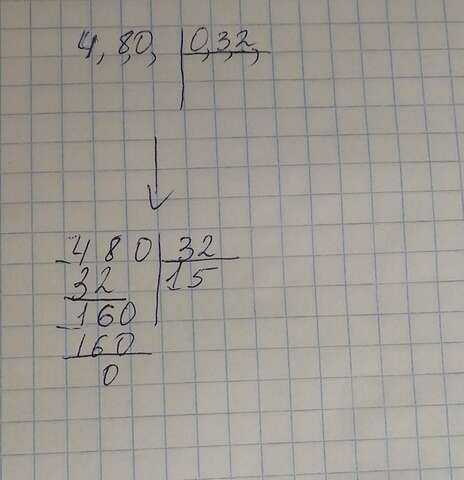 4,80, 0,32,
480 32
32 15
160
160
0